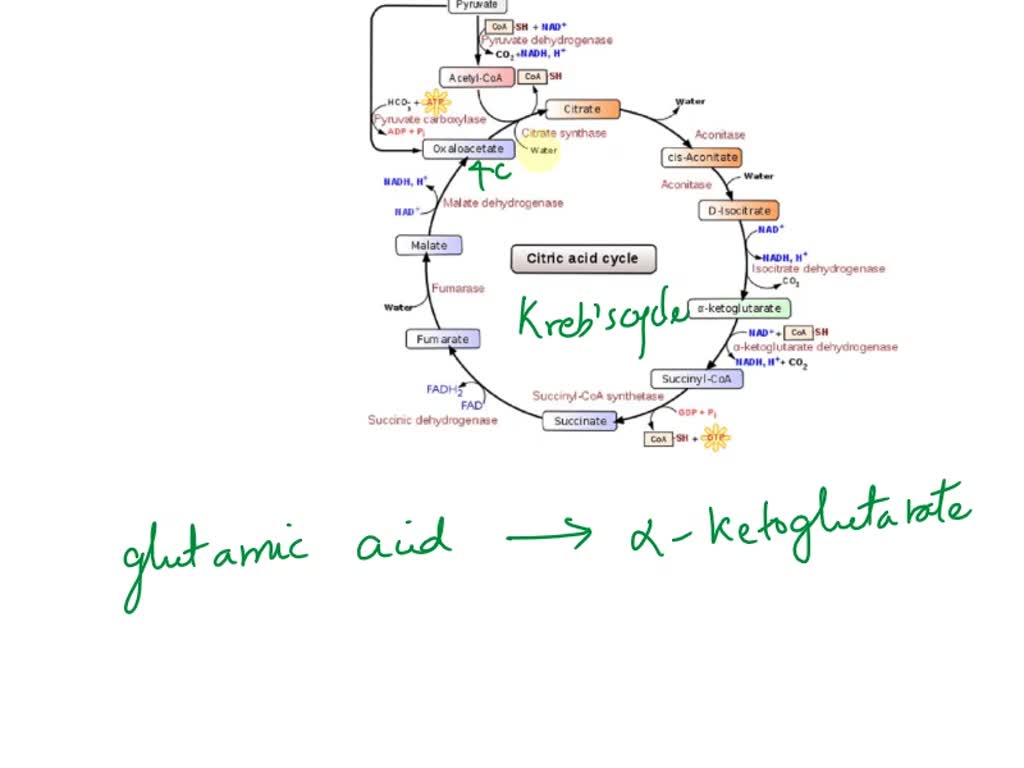 Pyruvate
CoA-SH + NAD+
Pyruvate dehydrogenase
CO2+NADH, H+
Acetyl-CoA
CoA-SH
HCO3 + ATP
Pyruvate carboxylase
ADP + Pi
Citrate
Water
Citrate synthase
Water
Aconitase
Oxaloacetate
4C
cis-Aconitate
Water
Aconitase
NADH, H+
NAD+
Malate dehydrogenase
D-Isocitrate
NAD+
NADH, H+
Isocitrate dehydrogenase
CO2
Malate
Citric acid cycle
Kreb's cycle
Fumarase
Water
α-ketoglutarate
NAD+ + CoA-SH
α-ketoglutarate dehydrogenase
NADH, H+ + CO2
Fumarate
Succinyl-CoA
FADH2
FAD
Succinic dehydrogenase
Succinyl-CoA synthetase
GDP + Pi
Succinate
CoA-SH + GTP
glutamic acid → α-ketoglutarate